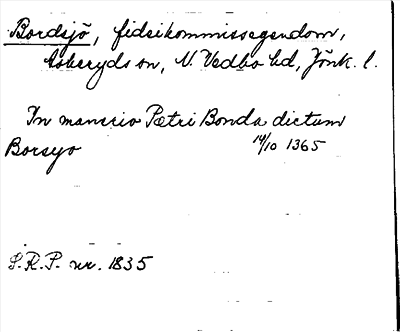 Bordsjö, fideikommissegendom,
Asbyryds sn, N. Vedbo hd, Jönk. l.
In manerio Petri Bonda dictum
Borsyo 14/10 1365
S.R.P. nr. 1835